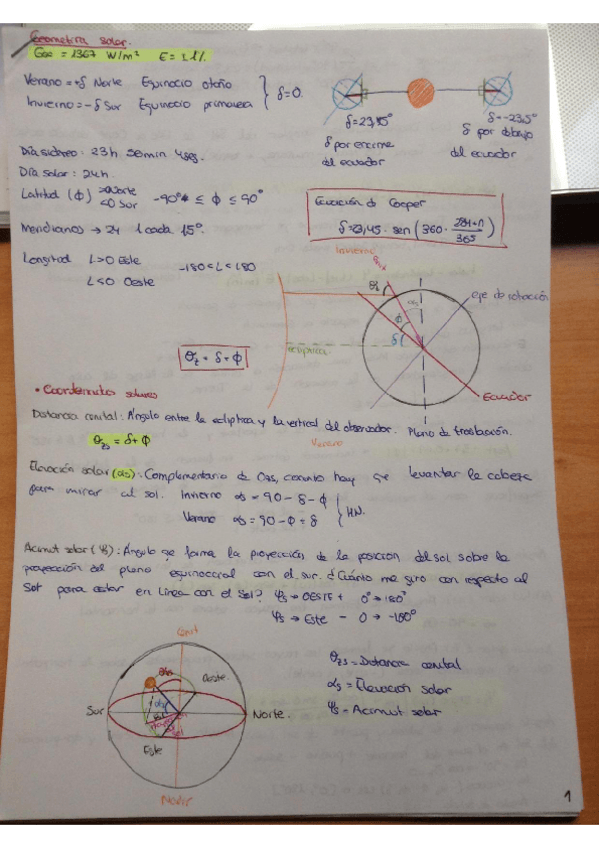 Geometría solar.
Gsc = 1367 W/m² E = ±1%
Verano = +δ Norte Equinocio otoño
Invierno = -δ Sur Equinocio primavera } δ=0.
δ=23,45° δ=-23,5°
δ por encima del ecuador
δ por debajo del ecuador
Día sidreo: 23h 56min 4seg.
Día solar: 24h.
Latitud (ϕ) >0 Norte <0 Sur -90° ≤ ϕ ≤ 90°
Ecuación d Cooper
δ=23,45 · sen (360 · 284+n/365)
Meridianos → 24 1 cada 15°.
Longitud L>0 Este -180<L<180
L<0 Oeste
Invierno
αs
ϕ
δ
eje de rotación
eclíptica
Ecuador
Verano
θz = δ+ϕ
• Coordenadas solares
Distancia cenital: Ángulo entre la eclíptica y la vertical del observador. Plano de traslación.
θzs = δ+ϕ
Elevación solar (αs): Complementario de θzs, cuanto hay que levantar la cabeza
para mirar al sol. Invierno αs = 90 - δ - ϕ
Verano αs = 90 - ϕ + δ } HN.
Acimut solar (ψs): Ángulo que forma la proyección de la posición del sol sobre la
proyección del plano equinoccial con el sur. ¿Cuánto me giro con respecto al
Sol para estar en línea con el Sol? ψs → OESTE + 0° → 180°
ψs → Este - 0 → -180°
Cenit
θzs
Oeste.
αs
Sur
Norte.
Este
Nadir
θzs = Distancia cenital
αs = Elevación solar
ψs = Acimut solar
1